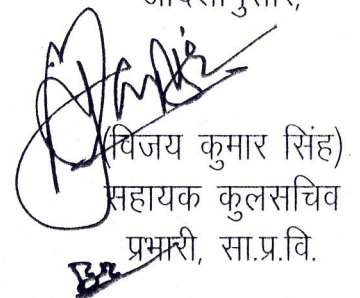 आदेशानुसार,
(विजय कुमार सिंह)
सहायक कुलसचिव
प्रभारी, सा.प्र.वि.